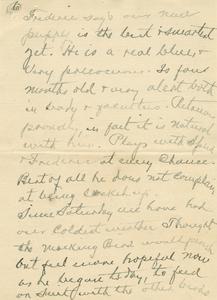 Frederic says our new
puppy is the best & smartest
yet. He is a real blue &
very precocious. Is four
months old & very alert both
in body & faculties. Retrieves
proudly, in fact it is natural
with him. Plays with
& Frederic at every chance.
Best of all he does not complain
at being
Since Saturday we have had
our coldest weather Thought
the Mocking Bird would perish
but feel more hopeful now
as he began today, to feed
on suet, with the other birds